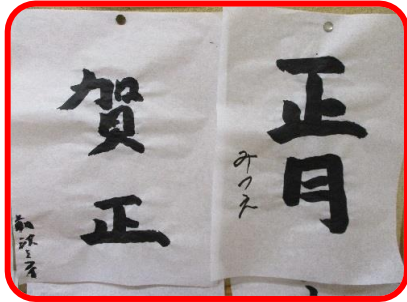 正月
みつえ
賀正